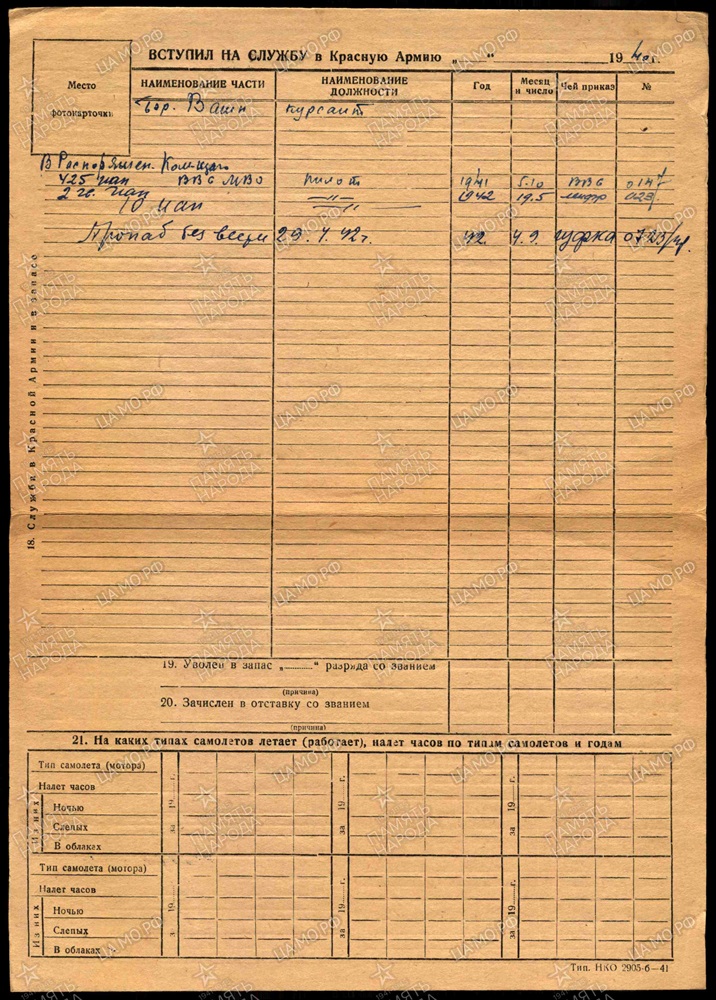 ВСТУПИЛ НА СЛУЖБУ в Красную Армию „ “ 1940 г.
Место фотокарточки
НАИМЕНОВАНИЕ ЧАСТИ НАИМЕНОВАНИЕ ДОЛЖНОСТИ Год Месяц и число Чей приказ №
курсант
В Распоряжен. Команд.
425 иап ВВС МВО пилот 1941 5.10 ВВС 0147
2 гв. иап —"— 1942 19.5 023
10 иап —"—
Пропал без вести 29.7.42 г. 42. 4.9. гуфка 0723/пр.
18. Служба в Красной Армии и в запасе
19. Уволен в запас „ “ разряда со званием
(причина)
20. Зачислен в отставку со званием
(причина)
21. На каких типах самолетов летает (работает), налет часов по типам самолетов и годам
Тип самолета (мотора)
Налет часов
Из них
Ночью
Слепых
В облаках
за 19 г.
за 19 г.
за 19 г.
Тип самолета (мотора)
Налет часов
Из них
Ночью
Слепых
В облаках
за 19 г.
за 19 г.
за 19 г.
Тип. НКО 2905-6—41
ПАМЯТЬ НАРОДА
ЦАМО.РФ